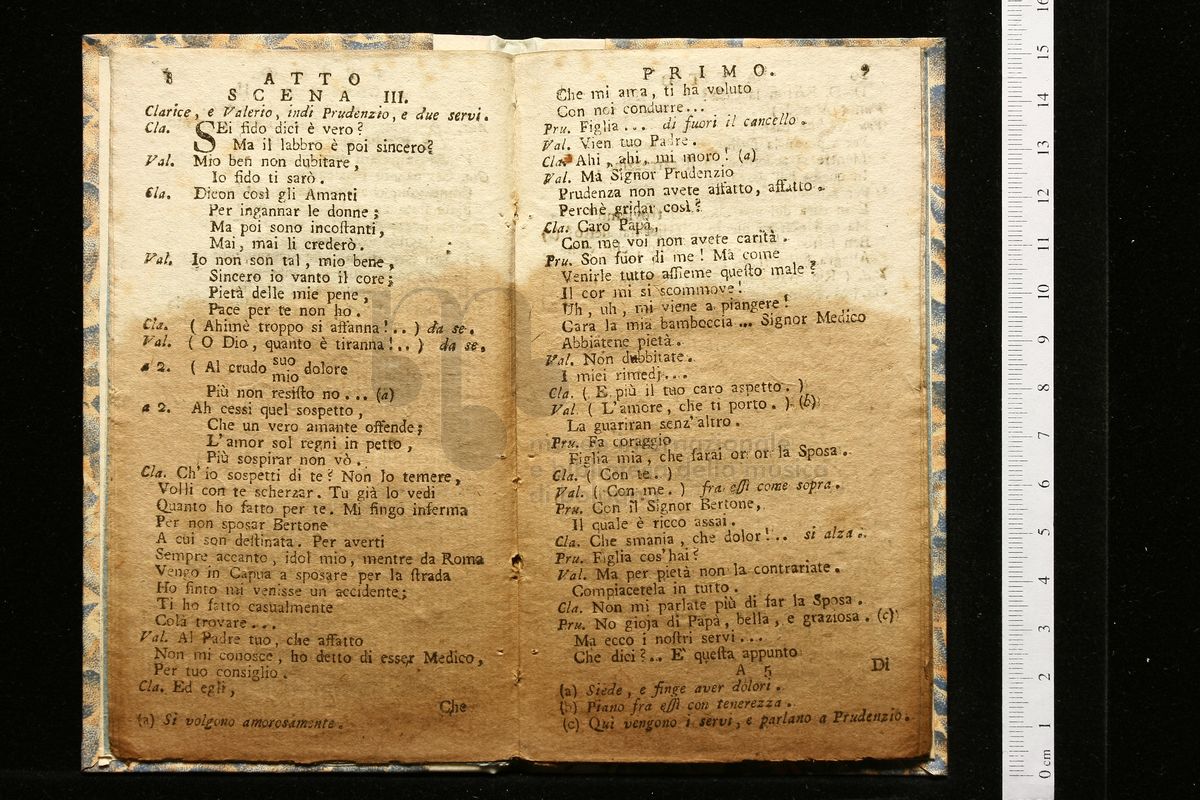 8 ATTO
SCENA III.
Clarice, e Valerio, indi Prudenzio, e due servi.
Cla. SEi fido dici è vero?
Ma il labbro è poi sincero?
Val. Mio ben non dubitare,
Io fido ti sarò.
Cla. Dicon così gli Amanti
Per ingannar le donne;
Ma poi sono incoſtanti,
Mai, mai li crederò.
Val. Io non son tal, mio bene,
Sincero io vanto il core;
Pietà delle mie pene,
Pace per te non ho.
Cla. ( Ahimè troppo si aſfanna!.. ) da se.
Val. ( O Dio, quanto è tiranna!.. ) da se.
a 2. ( Al crudo suo mio dolore
Più non resiſto no... (a)
a 2. Ah cessi quel sospetto,
Che un vero amante offende;
L'amor sol regni in petto,
Più sospirar non vò.
Cla. Ch'io sospetti di te? Non lo temere,
Volli con te scherzar. Tu già lo vedi
Quanto ho fatto per te. Mi fingo inferma
Per non sposar Bertone
A cui son deſtinata. Per averti
Sempre accanto, idol mio, mentre da Roma
Vengo in Capua a sposare per la ſtrada
Ho finto mi venisse un accidente;
Ti ho fatto casualmente
Colà trovare...
Val. Al Padre tuo, che affatto
Non mi conosce, ho detto di esser Medico,
Per tuo consiglio.
Cla. Ed egli,
Che
(a) Si volgono amorosamente.
PRIMO. 9
Che mi ama, ti ha voluto
Con noi condurre...
Pru. Figlia... di fuori il cancello.
Val. Vien tuo Padre.
Cla. Ahi, ahi, mi moro! (a)
Val. Mà Signor Prudenzio
Prudenza non avete affatto, affatto.
Perchè gridar così?
Cla. Caro Papà,
Con me voi non avete carità.
Pru. Son fuor di me! Mà come
Venirle tutto aſſieme queſto male?
Il cor mi si scommove!
Uh, uh, mi viene a piangere!
Cara la mia bamboccia... Signor Medico
Abbiatene pietà.
Val. Non dubbitate.
I miei rimedj...
Cla. ( E più il tuo caro aspetto. )
Val. ( L'amore, che ti porto. ) (b)
La guariran senz'altro.
Pru. Fa coraggio
Figlia mia, che sarai or or la Sposa.
Cla. ( Con te. )
Val. ( Con me. ) fra eſſi come sopra.
Pru. Con il Signor Bertone,
Il quale è ricco assai.
Cla. Che smania, che dolor!.. si alza.
Pru. Figlia cos'hai?
Val. Ma per pietà non la contrariate.
Compiacetela in tutto.
Cla. Non mi parlate più di far la Sposa.
Pru. No gioja di Papà, bella, e graziosa. (c)
Ma ecco i noſtri servi...
Che dici?.. E' queſta appunto
A 5 Di
(a) Siede, e finge aver dolori.
(b) Piano fra eſſi con tenerezza.
(c) Qui vengono i servi, e parlano a Prudenzio.
0 cm 1 2 3 4 5 6 7 8 9 10 11 12 13 14 15 16